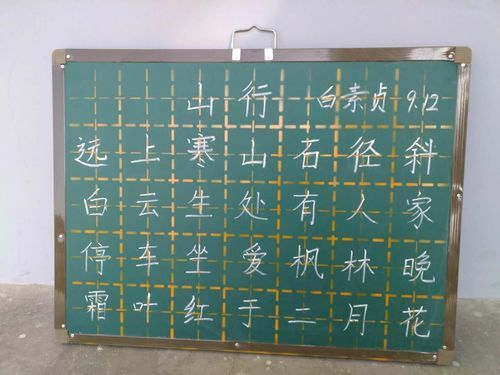 山行 白素贞 9.12
远上寒山石径斜
白云生处有人家
停车坐爱枫林晚
霜叶红于二月花